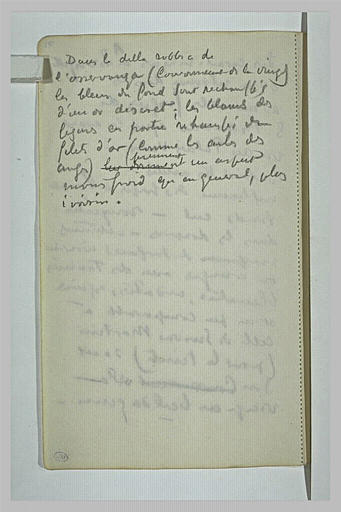 Dans le della robbia de
l'osservanza (Couronnement de la vierge)
les bleus du fond sont rechauffés
d'un or discret ; les blancs des
figures en partie rehaussés d'un
filet d'or (comme les ailes des
anges) leur donnent un aspect
moins froid qu'en general, plus
ivoirin.